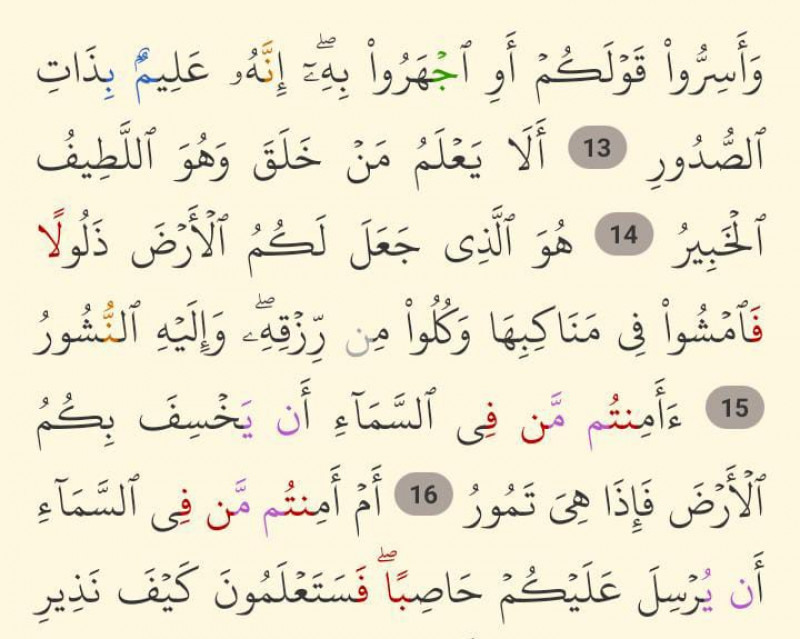 وَأَسِرُّوا۟ قَوْلَكُمْ أَوِ ٱجْهَرُوا۟ بِهِۦٓ ۖ إِنَّهُۥ عَلِيمٌۢ بِذَاتِ
ٱلصُّدُورِ 13 أَلَا يَعْلَمُ مَنْ خَلَقَ وَهُوَ ٱللَّطِيفُ
ٱلْخَبِيرُ 14 هُوَ ٱلَّذِى جَعَلَ لَكُمُ ٱلْأَرْضَ ذَلُولًا
فَٱمْشُوا۟ فِى مَنَاكِبِهَا وَكُلُوا۟ مِن رِّزْقِهِۦ ۖ وَإِلَيْهِ ٱلنُّشُورُ
15 ءَأَمِنتُم مَّن فِى ٱلسَّمَآءِ أَن يَخْسِفَ بِكُمُ
ٱلْأَرْضَ فَإِذَا هِىَ تَمُورُ 16 أَمْ أَمِنتُم مَّن فِى ٱلسَّمَآءِ
أَن يُرْسِلَ عَلَيْكُمْ حَاصِبًا ۖ فَسَتَعْلَمُونَ كَيْفَ نَذِيرِ